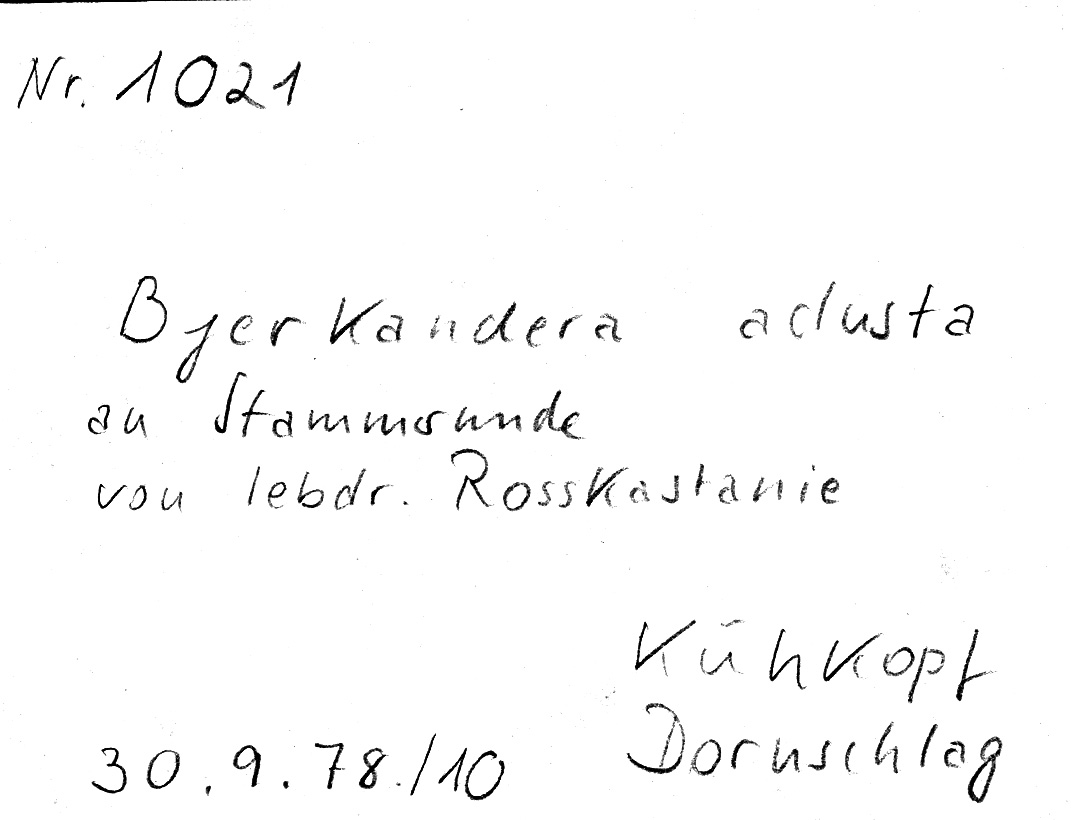 Nr. 1021
Byerkandera adusta
an Stammwunde
von lebdr. Rosskastanie
Kühkopf
Dornschlag
30.9.78./10